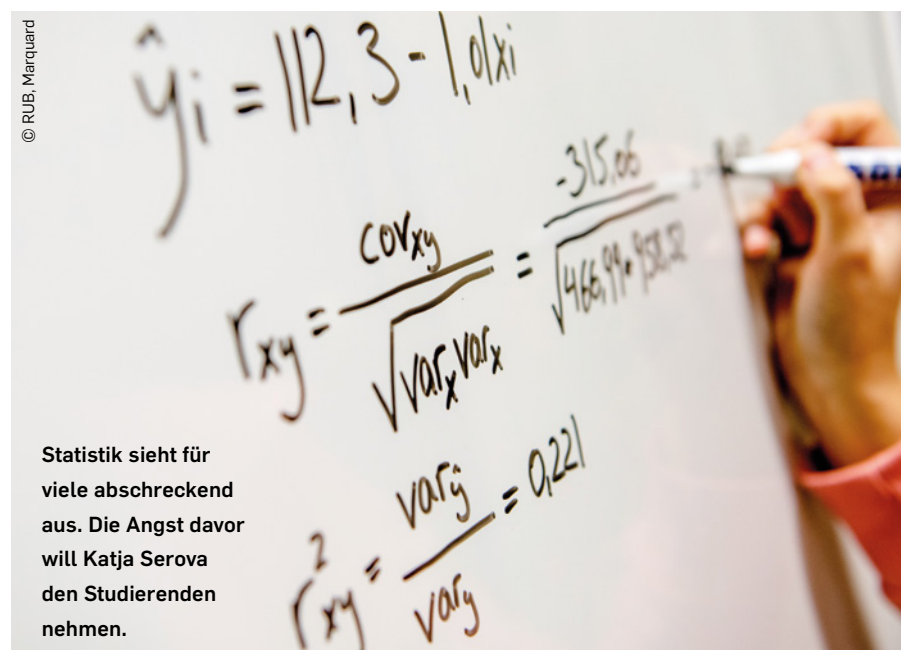 © RUB, Marquard
ŷi = 112,3 - 1,01xi
rxy = covxy / √varx varx = -315,06 / √466,99 • 958,52
r²xy = varŷ / vary = 0,221
Statistik sieht für
viele abschreckend
aus. Die Angst davor
will Katja Serova
den Studierenden
nehmen.